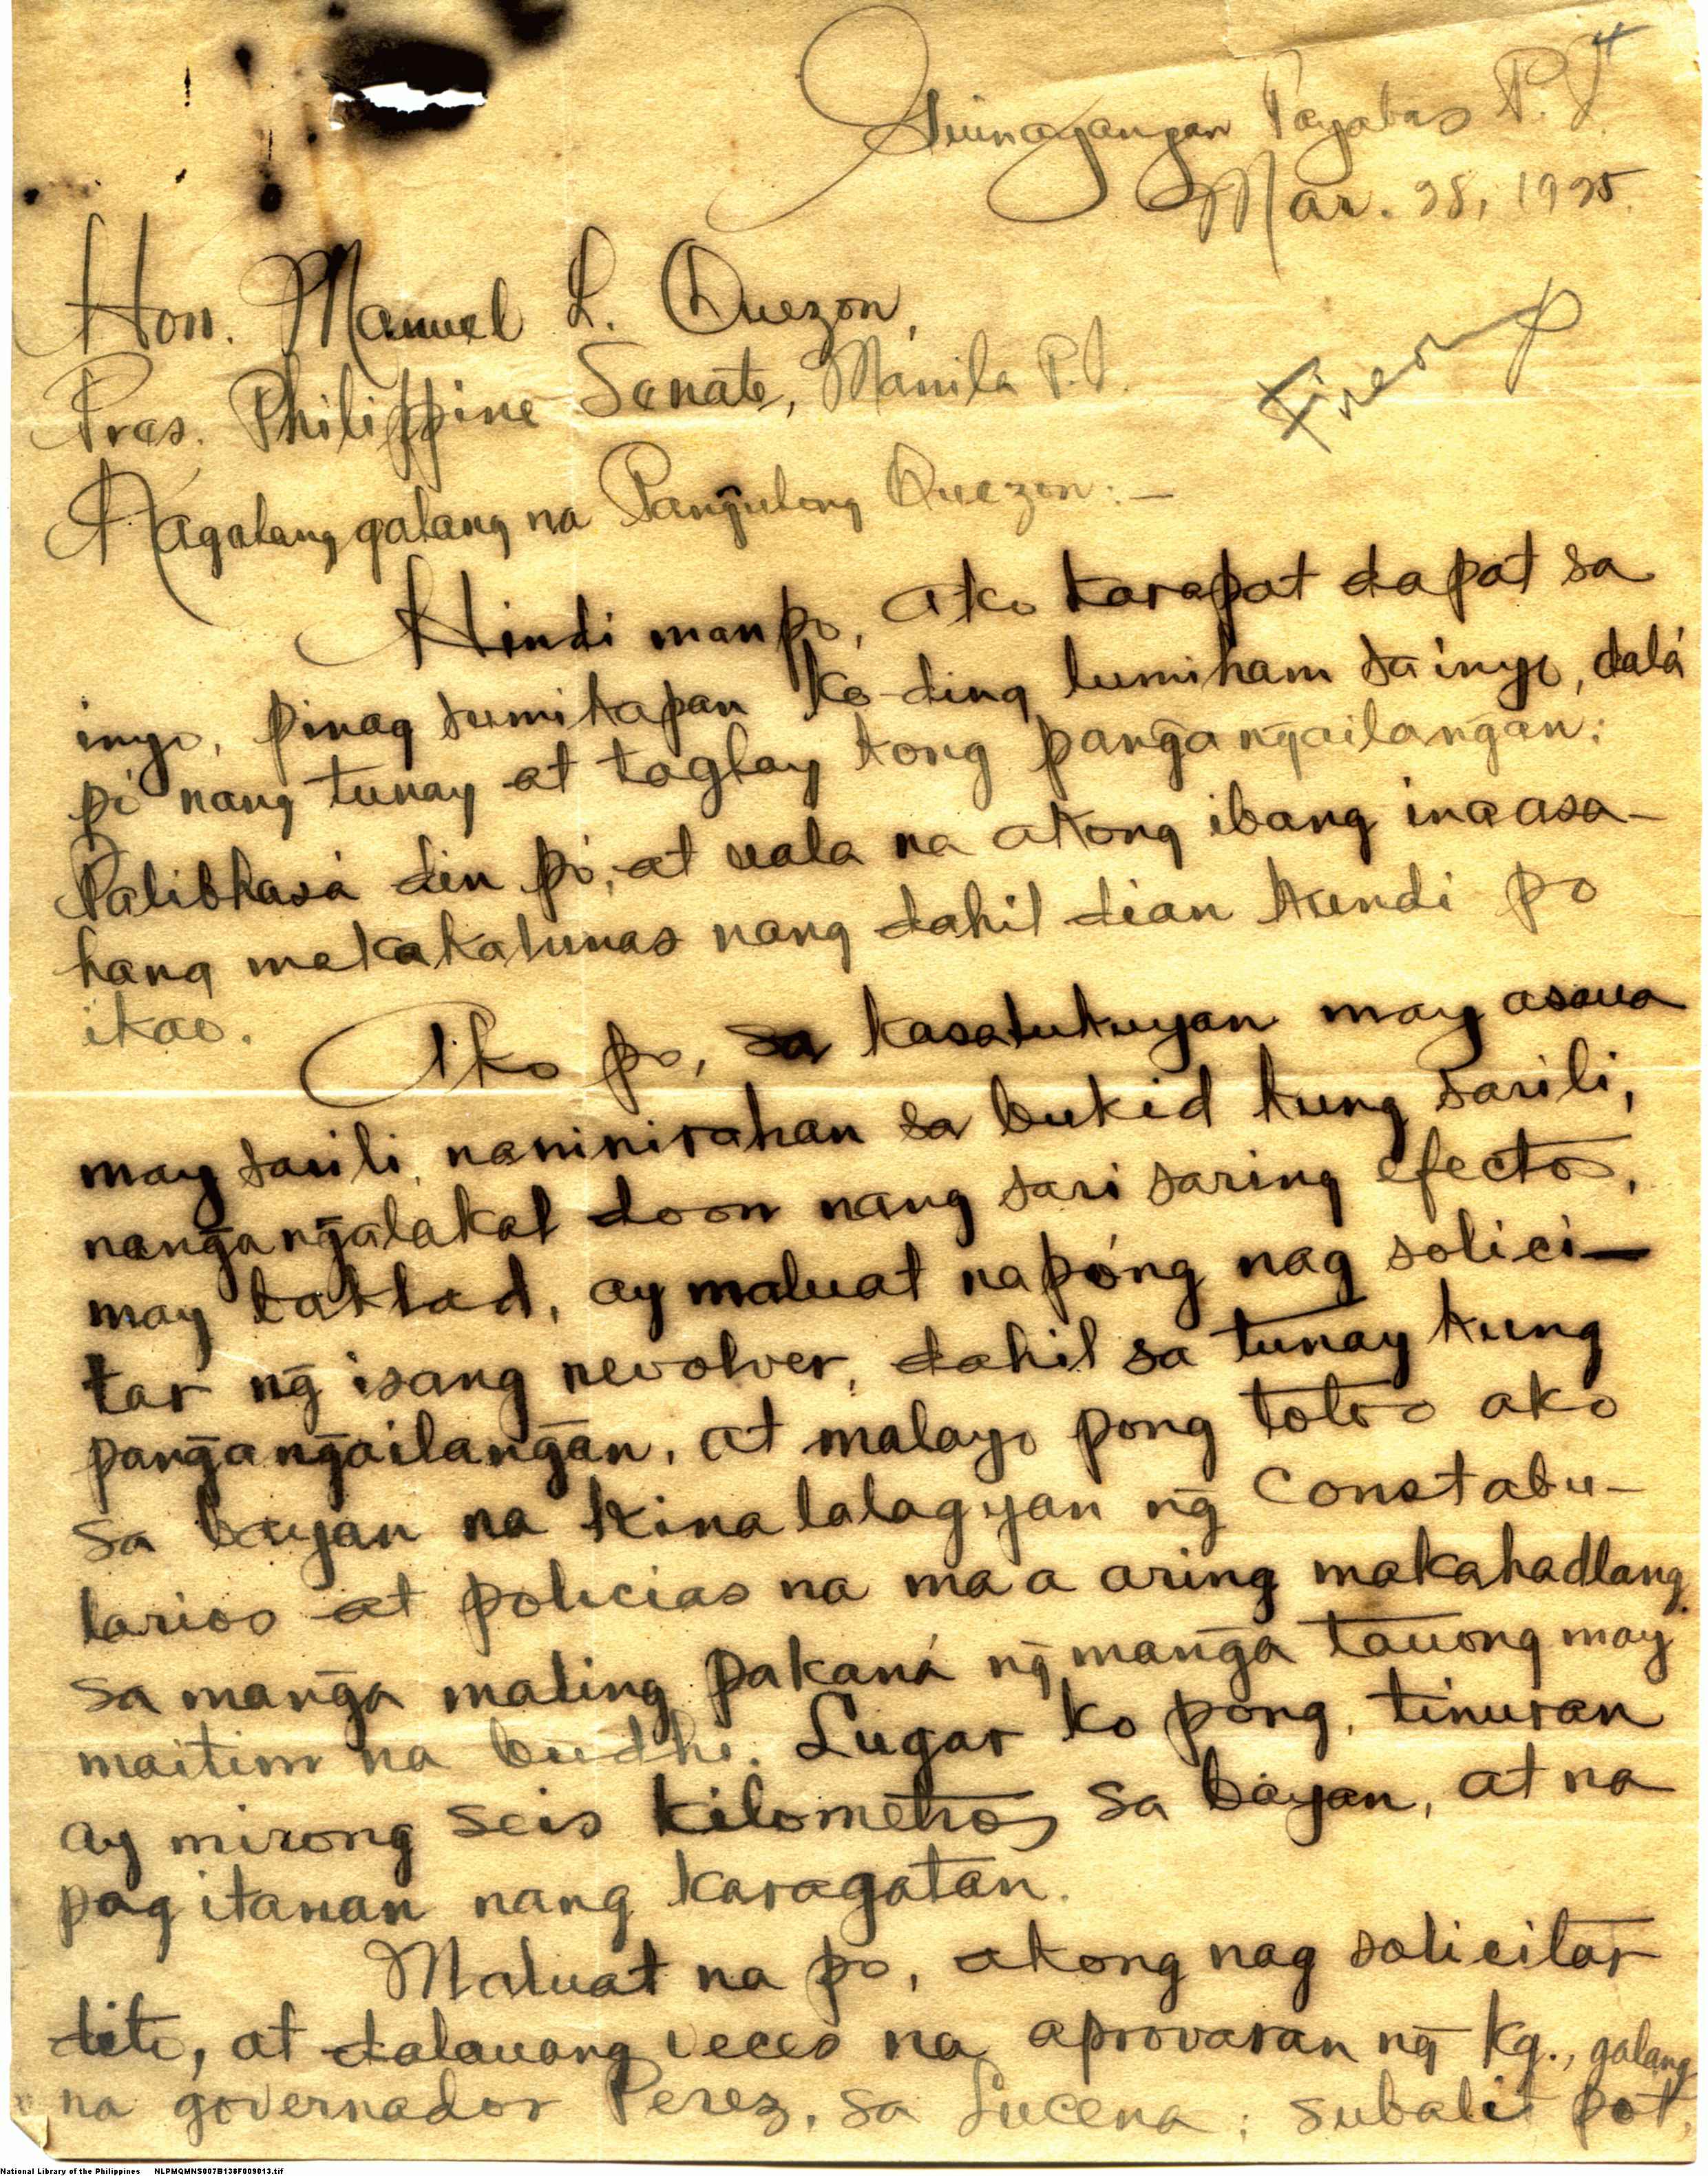 Guinayangan Tayabas P.I.
Mar. 28, 1925.
Hon. Manuel L. Quezon,
Pres. Philippine Senate, Manila P.I.
Kagalang galang na Pangulong Quezon:—
Hindi man po, ako karapat dapat sa
inyo, pinag sumikapan ko ding lumiham sa inyo, dala
pó nang tunay at taglay kong pangangailangan:
Palibhasá din pó, at uala na akong ibang inaasa-
hang makakalunas nang dahil dian kundi po
ikao.
Ako po, sa kasalukuyan may asaua
may sarili, naninirahan sa bukid kung sarili,
nangangalakal doon nang sari saring efectos,
may kaklad, ay maluat na póng nag solici-
tar ng̃ isang revolver, dahil sa tunay kung
pang̃ang̃ailang̃an, at malayo pong totoo ako
sa bayan na kinalalagyan ng̃ Constabu-
larios at policias na maa aring makahadlang
sa mang̃a maling pakaná ng̃ mang̃a tauong may
maitim na budhi. Lugar ko pong, tinuran
ay mirong seis kilometros sa bayan, at na
pag itanan nang karagatan.
Maluat na po, akong nag solicitar
dito, at dalauang veces na aprovaran ng̃ Kg., galang
na governador Perez, sa Lucena; subali't pot,
Firearm
National Library of the Philippines NLPMQMNS007B138F009013.tif